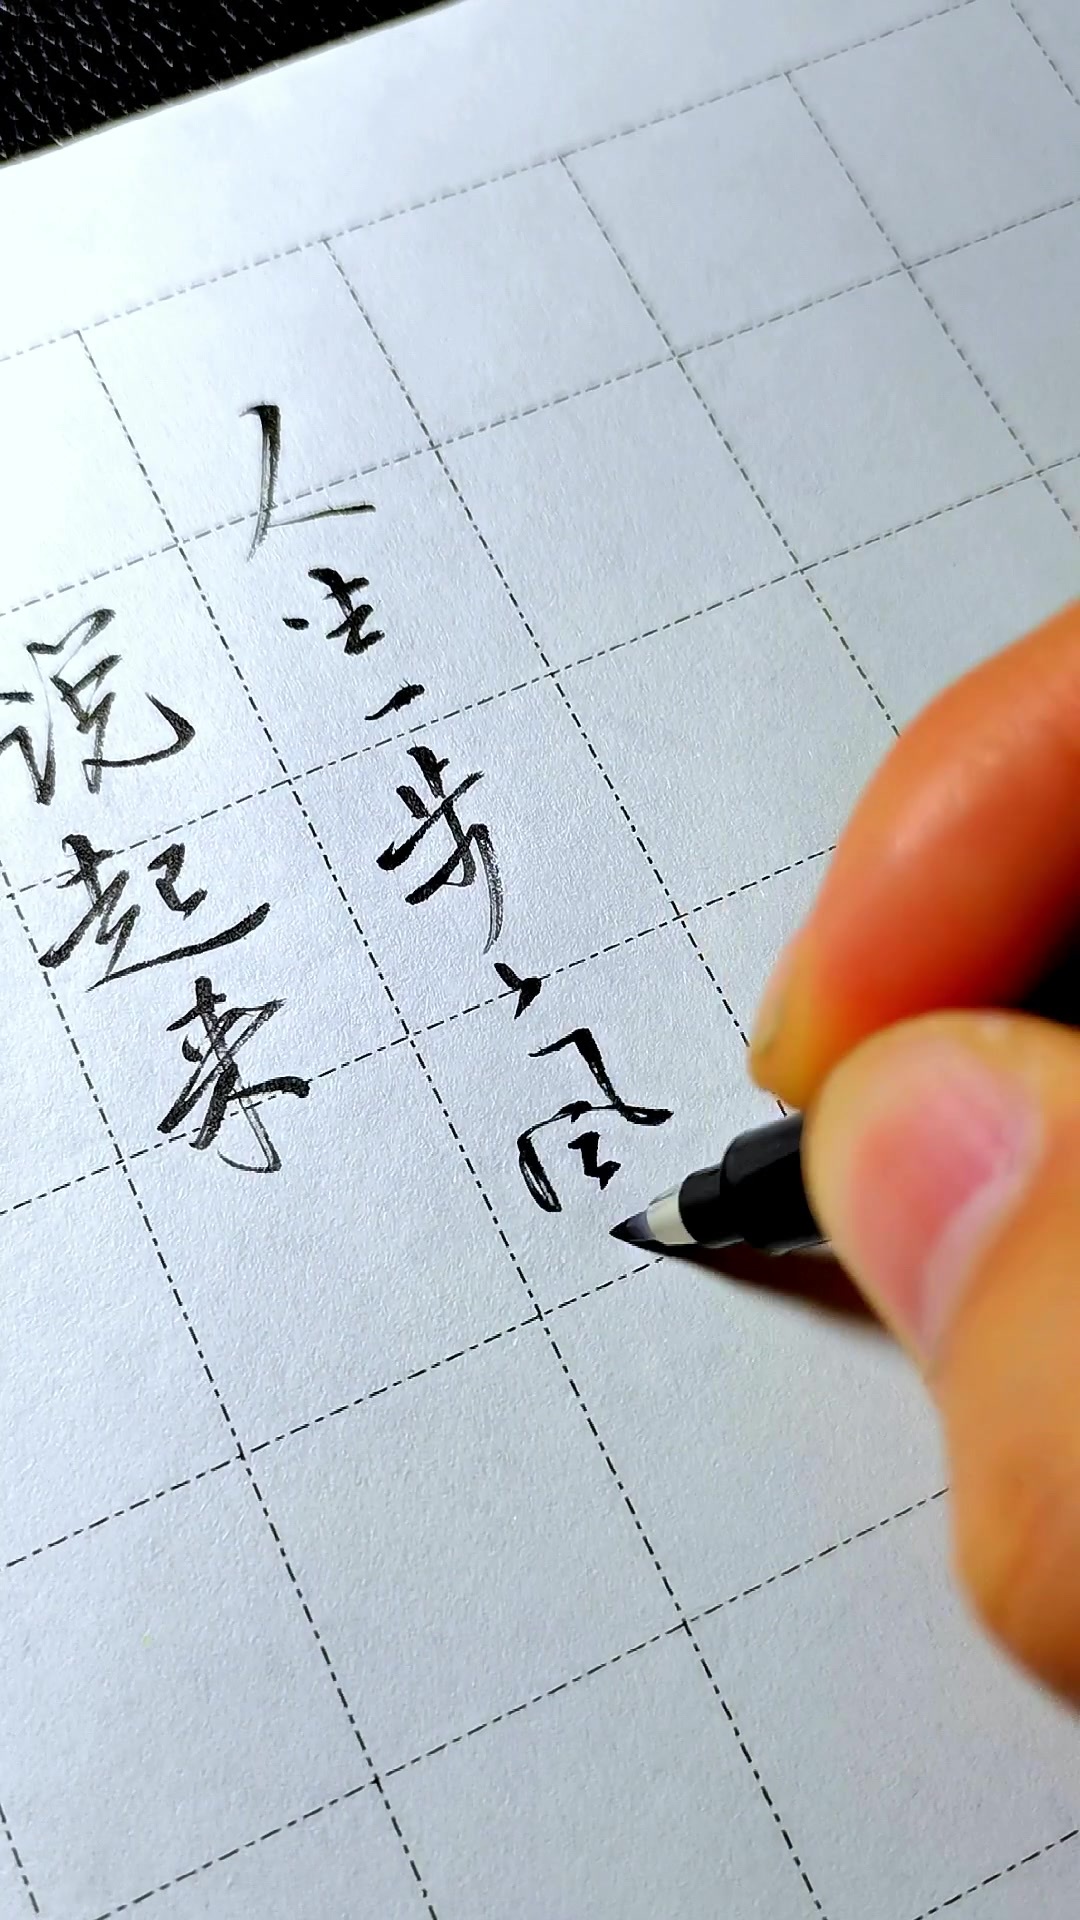 说起来
人生一步一风